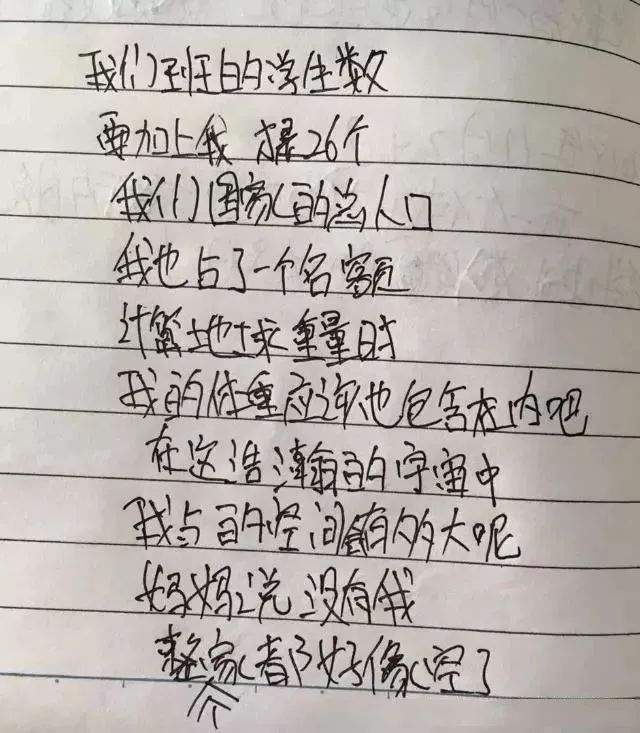 我们班的学生数
要加上我 才是26个
我们国家的总人口
我也占了一个名额
计算地球重量时
我的体重应该也包含在内吧
在这浩瀚的宇宙中
我占的空间有多大呢
妈妈说没有我
整个家都好像空了